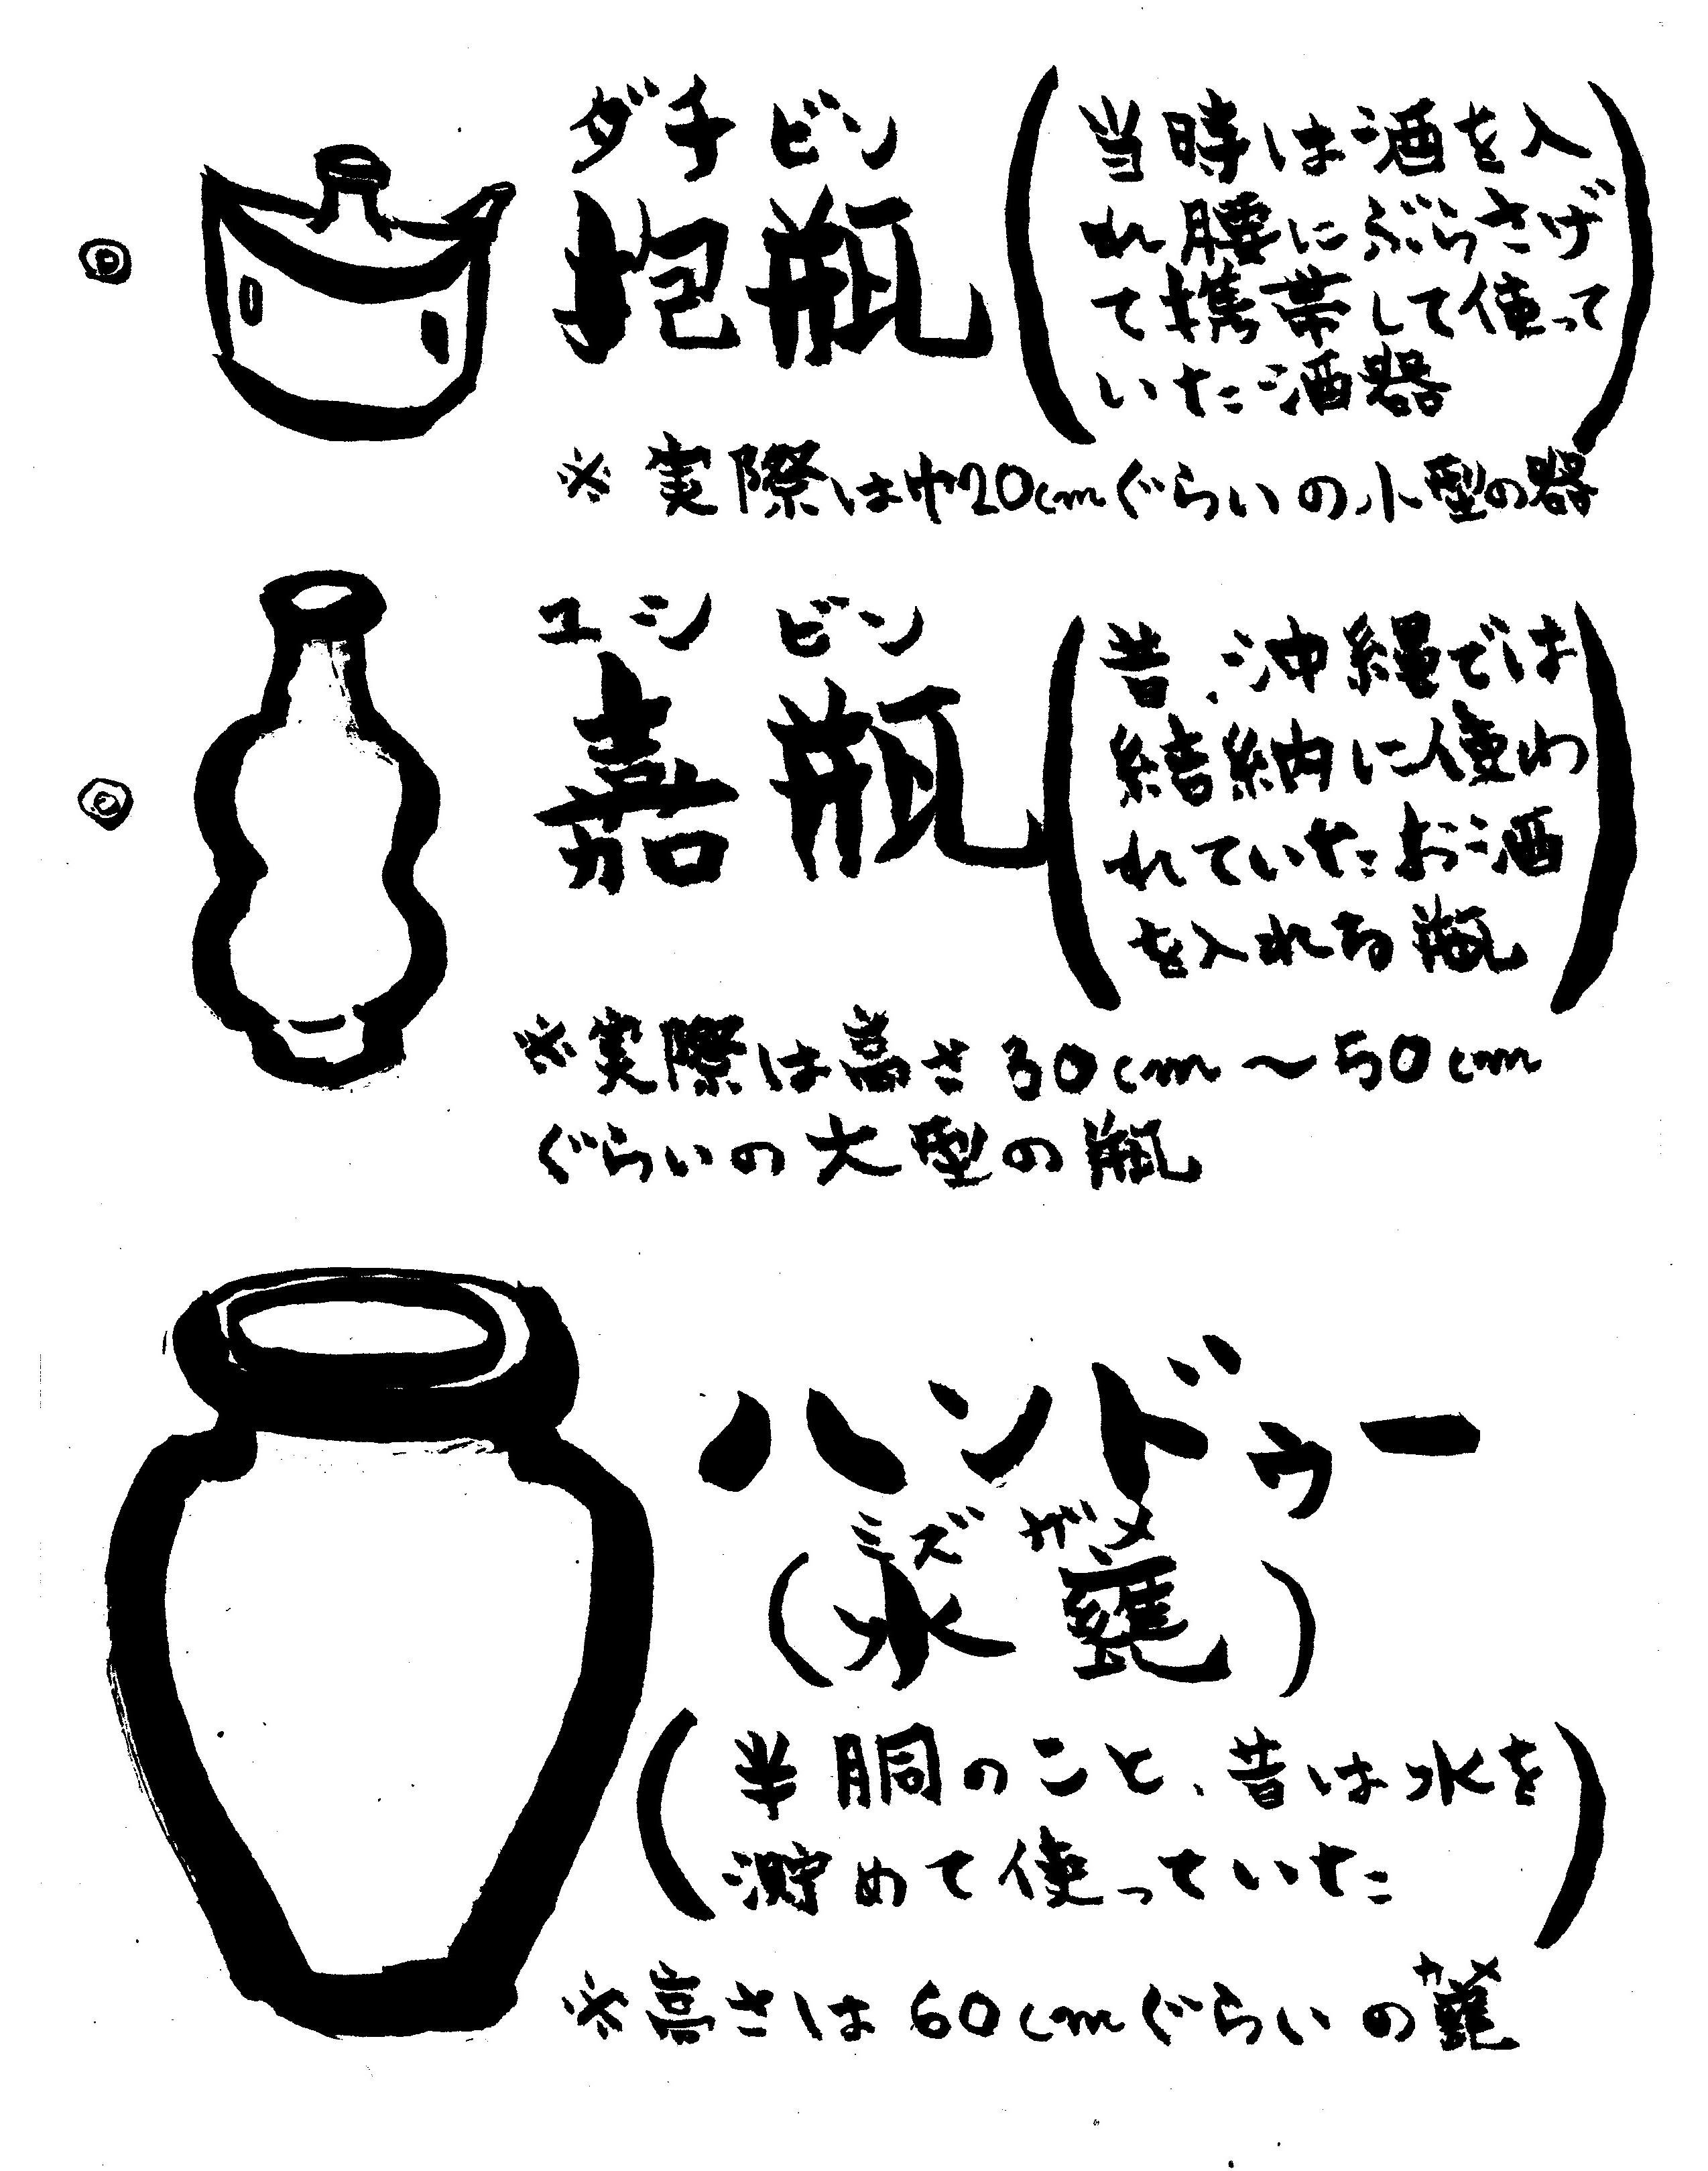 ダチビン
抱瓶
(当時は酒を入
れ腰にぶらさげ
て携帯して使って
いた酒器)
※実際は巾20cmぐらいの小型の器
ユシビン
嘉瓶
(昔、沖縄では
結納に使わ
れていたお酒
を入れる瓶)
※実際は高さ30cm〜50cm
ぐらいの大型の瓶
ハンドゥー
ミズガメ
(水甕)
(半胴のこと、昔は水を
貯めて使っていた)
カメ
※高さは60cmぐらいの甕